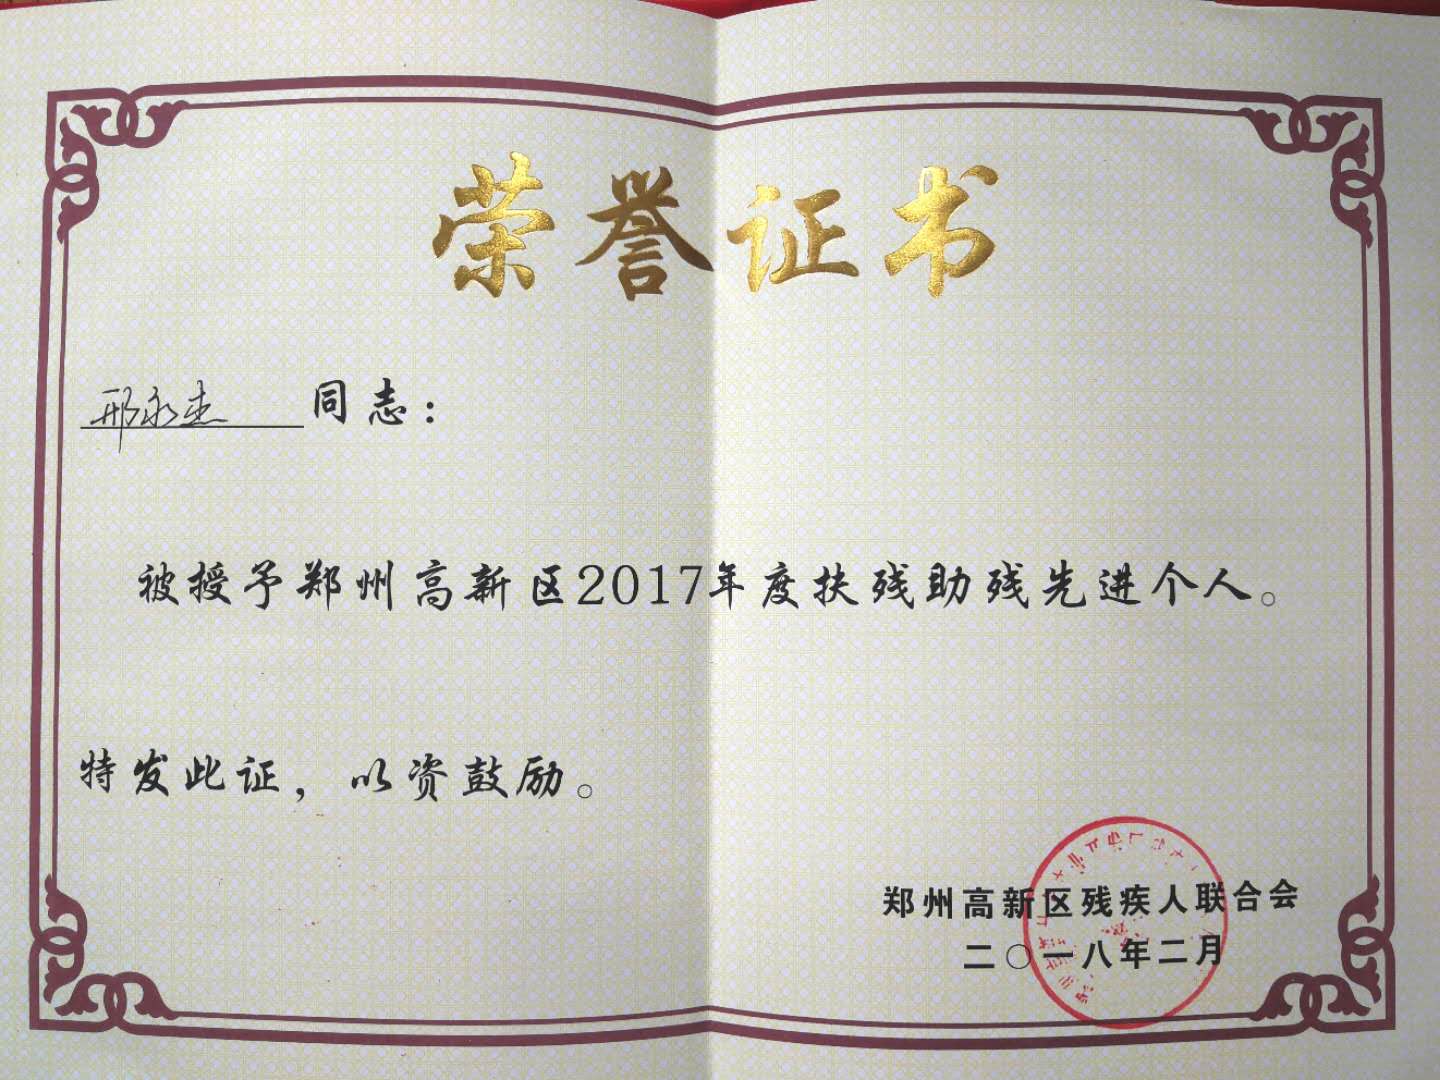 荣誉证书
邢永杰 同志：
被授予郑州高新区2017年度扶残助残先进个人。
特发此证，以资鼓励。
郑州高新区残疾人联合会
二〇一八年二月